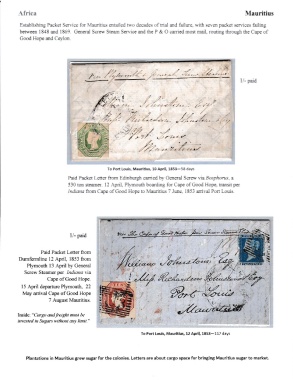 Africa
Mauritius
Establishing Packet Service for Mauritius entailed two decades of trial and failure, with seven packet services failing
between 1848 and 1869. General Screw Steam Service and the P & O carried most mail, routing through the Cape of
Good Hope and Ceylon.
1/- paid
Port Louis
Mauritius
To Port Louis, Mauritius, 10 April, 1853—58 days
Paid Packet Letter from Edinburgh carried by General Screw via Bosphorus, a
530 ton steamer. 12 April, Plymouth boarding for Cape of Good Hope, transit per
Indiana from Cape of Good Hope to Mauritius 7 June, 1853 arrival Port Louis.
1/- paid
Paid Packet Letter from
Dunfermline 12 April, 1853 from
Plymouth 15 April by General
Screw Steamer per Indiana via
Cape of Good Hope
15 April departure Plymouth, 22
May arrival Cape of Good Hope
7 August Mauritius.
Inside, "Cargo and freight must be
invested in Sugars without any limit."
William Johnstone Esq
Port Louis
Mauritius
To Port Louis, Mauritius, 12 April, 1853— 117 days
Plantations in Mauritius grew sugar for the colonies. Letters are about cargo space for bringing Mauritius sugar to market.